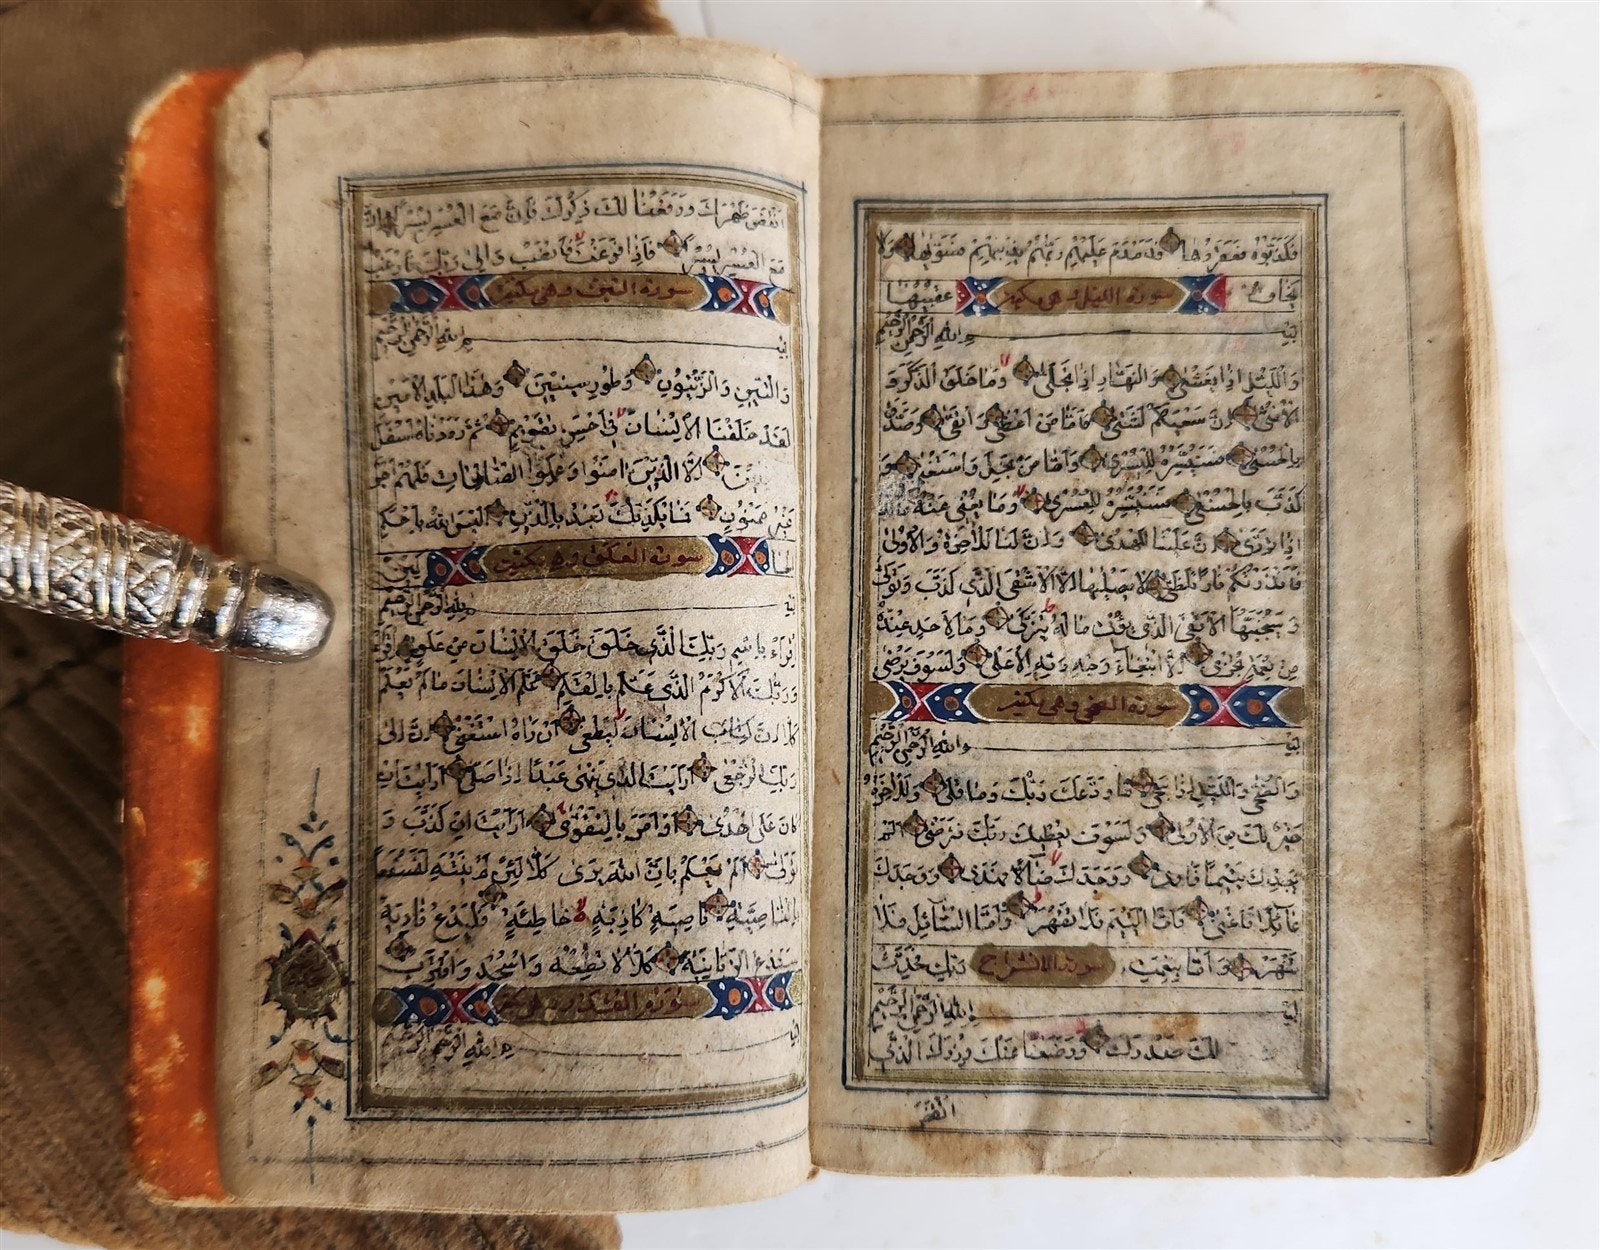 فَكَذَّبُوهُ فَعَقَرُوهَا فَدَمْدَمَ عَلَيْهِمْ رَبُّهُمْ بِذَنْبِهِمْ فَسَوَّيٰهَا وَلَا
يَخَافُ سورة الليل وهي مكية عُقْبٰيهَا
بسم الله الرحمن الرحيم
وَالَّيْلِ إِذَا يَغْشَى وَالنَّهَارِ إِذَا تَجَلَّى وَمَا خَلَقَ الذَّكَرَ وَ
الْأُنْثَى إِنَّ سَعْيَكُمْ لَشَتَّى فَأَمَّا مَنْ أَعْطَى وَاتَّقَى وَصَدَّقَ
بِالْحُسْنَى فَسَنُيَسِّرُهُ لِلْيُسْرَى وَأَمَّا مَنْ بَخِلَ وَاسْتَغْنَى وَ
كَذَّبَ بِالْحُسْنَى فَسَنُيَسِّرُهُ لِلْعُسْرَى وَمَا يُغْنِي عَنْهُ مَالُهُ
إِذَا تَرَدَّى إِنَّ عَلَيْنَا لَلْهُدَى وَإِنَّ لَنَا لَلْآخِرَةَ وَالْأُولَى
فَأَنْذَرْتُكُمْ نَارًا تَلَظَّى لَا يَصْلٰيهَا إِلَّا الْأَشْقَى الَّذِي كَذَّبَ وَتَوَلَّى
وَسَيُجَنَّبُهَا الْأَتْقَى الَّذِي يُؤْتِي مَالَهُ يَتَزَكَّى وَمَا لِأَحَدٍ عِنْدَهُ
مِنْ نِعْمَةٍ تُجْزَى إِلَّا ابْتِغَاءَ وَجْهِ رَبِّهِ الْأَعْلَى وَلَسَوْفَ يَرْضَى
سورة الضحى وهي مكية
بسم الله الرحمن الرحيم
وَالضُّحَى وَالَّيْلِ إِذَا سَجَى مَا وَدَّعَكَ رَبُّكَ وَمَا قَلَى وَلَلْآخِرَةُ
خَيْرٌ لَكَ مِنَ الْأُولَى وَلَسَوْفَ يُعْطِيكَ رَبُّكَ فَتَرْضَى أَلَمْ
يَجِدْكَ يَتِيمًا فَآوَى وَوَجَدَكَ ضَالًّا فَهَدَى وَوَجَدَكَ
عَائِلًا فَأَغْنَى فَأَمَّا الْيَتِيمَ فَلَا تَقْهَرْ وَأَمَّا السَّائِلَ فَلَا
تَنْهَرْ وَأَمَّا بِنِعْمَةِ سورة الانشراح رَبِّكَ فَحَدِّثْ
بسم الله الرحمن الرحيم
لَكَ صَدْرَكَ وَوَضَعْنَا عَنْكَ وِزْرَكَ الَّذِي
أَنْقَضَ
أَنْقَضَ ظَهْرَكَ وَرَفَعْنَا لَكَ ذِكْرَكَ فَإِنَّ مَعَ الْعُسْرِ يُسْرًا إِنَّ
مَعَ الْعُسْرِ يُسْرًا فَإِذَا فَرَغْتَ فَانْصَبْ وَإِلَى رَبِّكَ فَارْغَبْ
سورة التين وهي مكية
بسم الله الرحمن الرحيم
وَالتِّينِ وَالزَّيْتُونِ وَطُورِ سِينِينَ وَهَذَا الْبَلَدِ الْأَمِينِ
لَقَدْ خَلَقْنَا الْإِنْسَانَ فِي أَحْسَنِ تَقْوِيمٍ ثُمَّ رَدَدْنَاهُ أَسْفَلَ
سَافِلِينَ إِلَّا الَّذِينَ آمَنُوا وَعَمِلُوا الصَّالِحَاتِ فَلَهُمْ أَجْرٌ
غَيْرُ مَمْنُونٍ فَمَا يُكَذِّبُكَ بَعْدُ بِالدِّينِ أَلَيْسَ اللهُ بِأَحْكَمِ
الْحَا سورة العلق وهي مكية كِمِينَ
بسم الله الرحمن الرحيم
اِقْرَأْ بِاسْمِ رَبِّكَ الَّذِي خَلَقَ خَلَقَ الْإِنْسَانَ مِنْ عَلَقٍ اقْرَأْ
وَرَبُّكَ الْأَكْرَمُ الَّذِي عَلَّمَ بِالْقَلَمِ عَلَّمَ الْإِنْسَانَ مَا لَمْ يَعْلَمْ
كَلَّا إِنَّ الْإِنْسَانَ لَيَطْغَى أَنْ رَآهُ اسْتَغْنَى إِنَّ إِلَى
رَبِّكَ الرُّجْعَى أَرَأَيْتَ الَّذِي يَنْهَى عَبْدًا إِذَا صَلَّى أَرَأَيْتَ إِنْ
كَانَ عَلَى الْهُدَى أَوْ أَمَرَ بِالتَّقْوَى أَرَأَيْتَ إِنْ كَذَّبَ وَ
تَوَلَّى أَلَمْ يَعْلَمْ بِأَنَّ اللهَ يَرَى كَلَّا لَئِنْ لَمْ يَنْتَهِ لَنَسْفَعًا
بِالنَّاصِيَةِ نَاصِيَةٍ كَاذِبَةٍ خَاطِئَةٍ فَلْيَدْعُ نَادِيَهُ
سَنَدْعُ الزَّبَانِيَةَ كَلَّا لَا تُطِعْهُ وَاسْجُدْ وَاقْتَرِبْ
سورة القدر وهي مكية
بسم الله الرحمن الرحيم